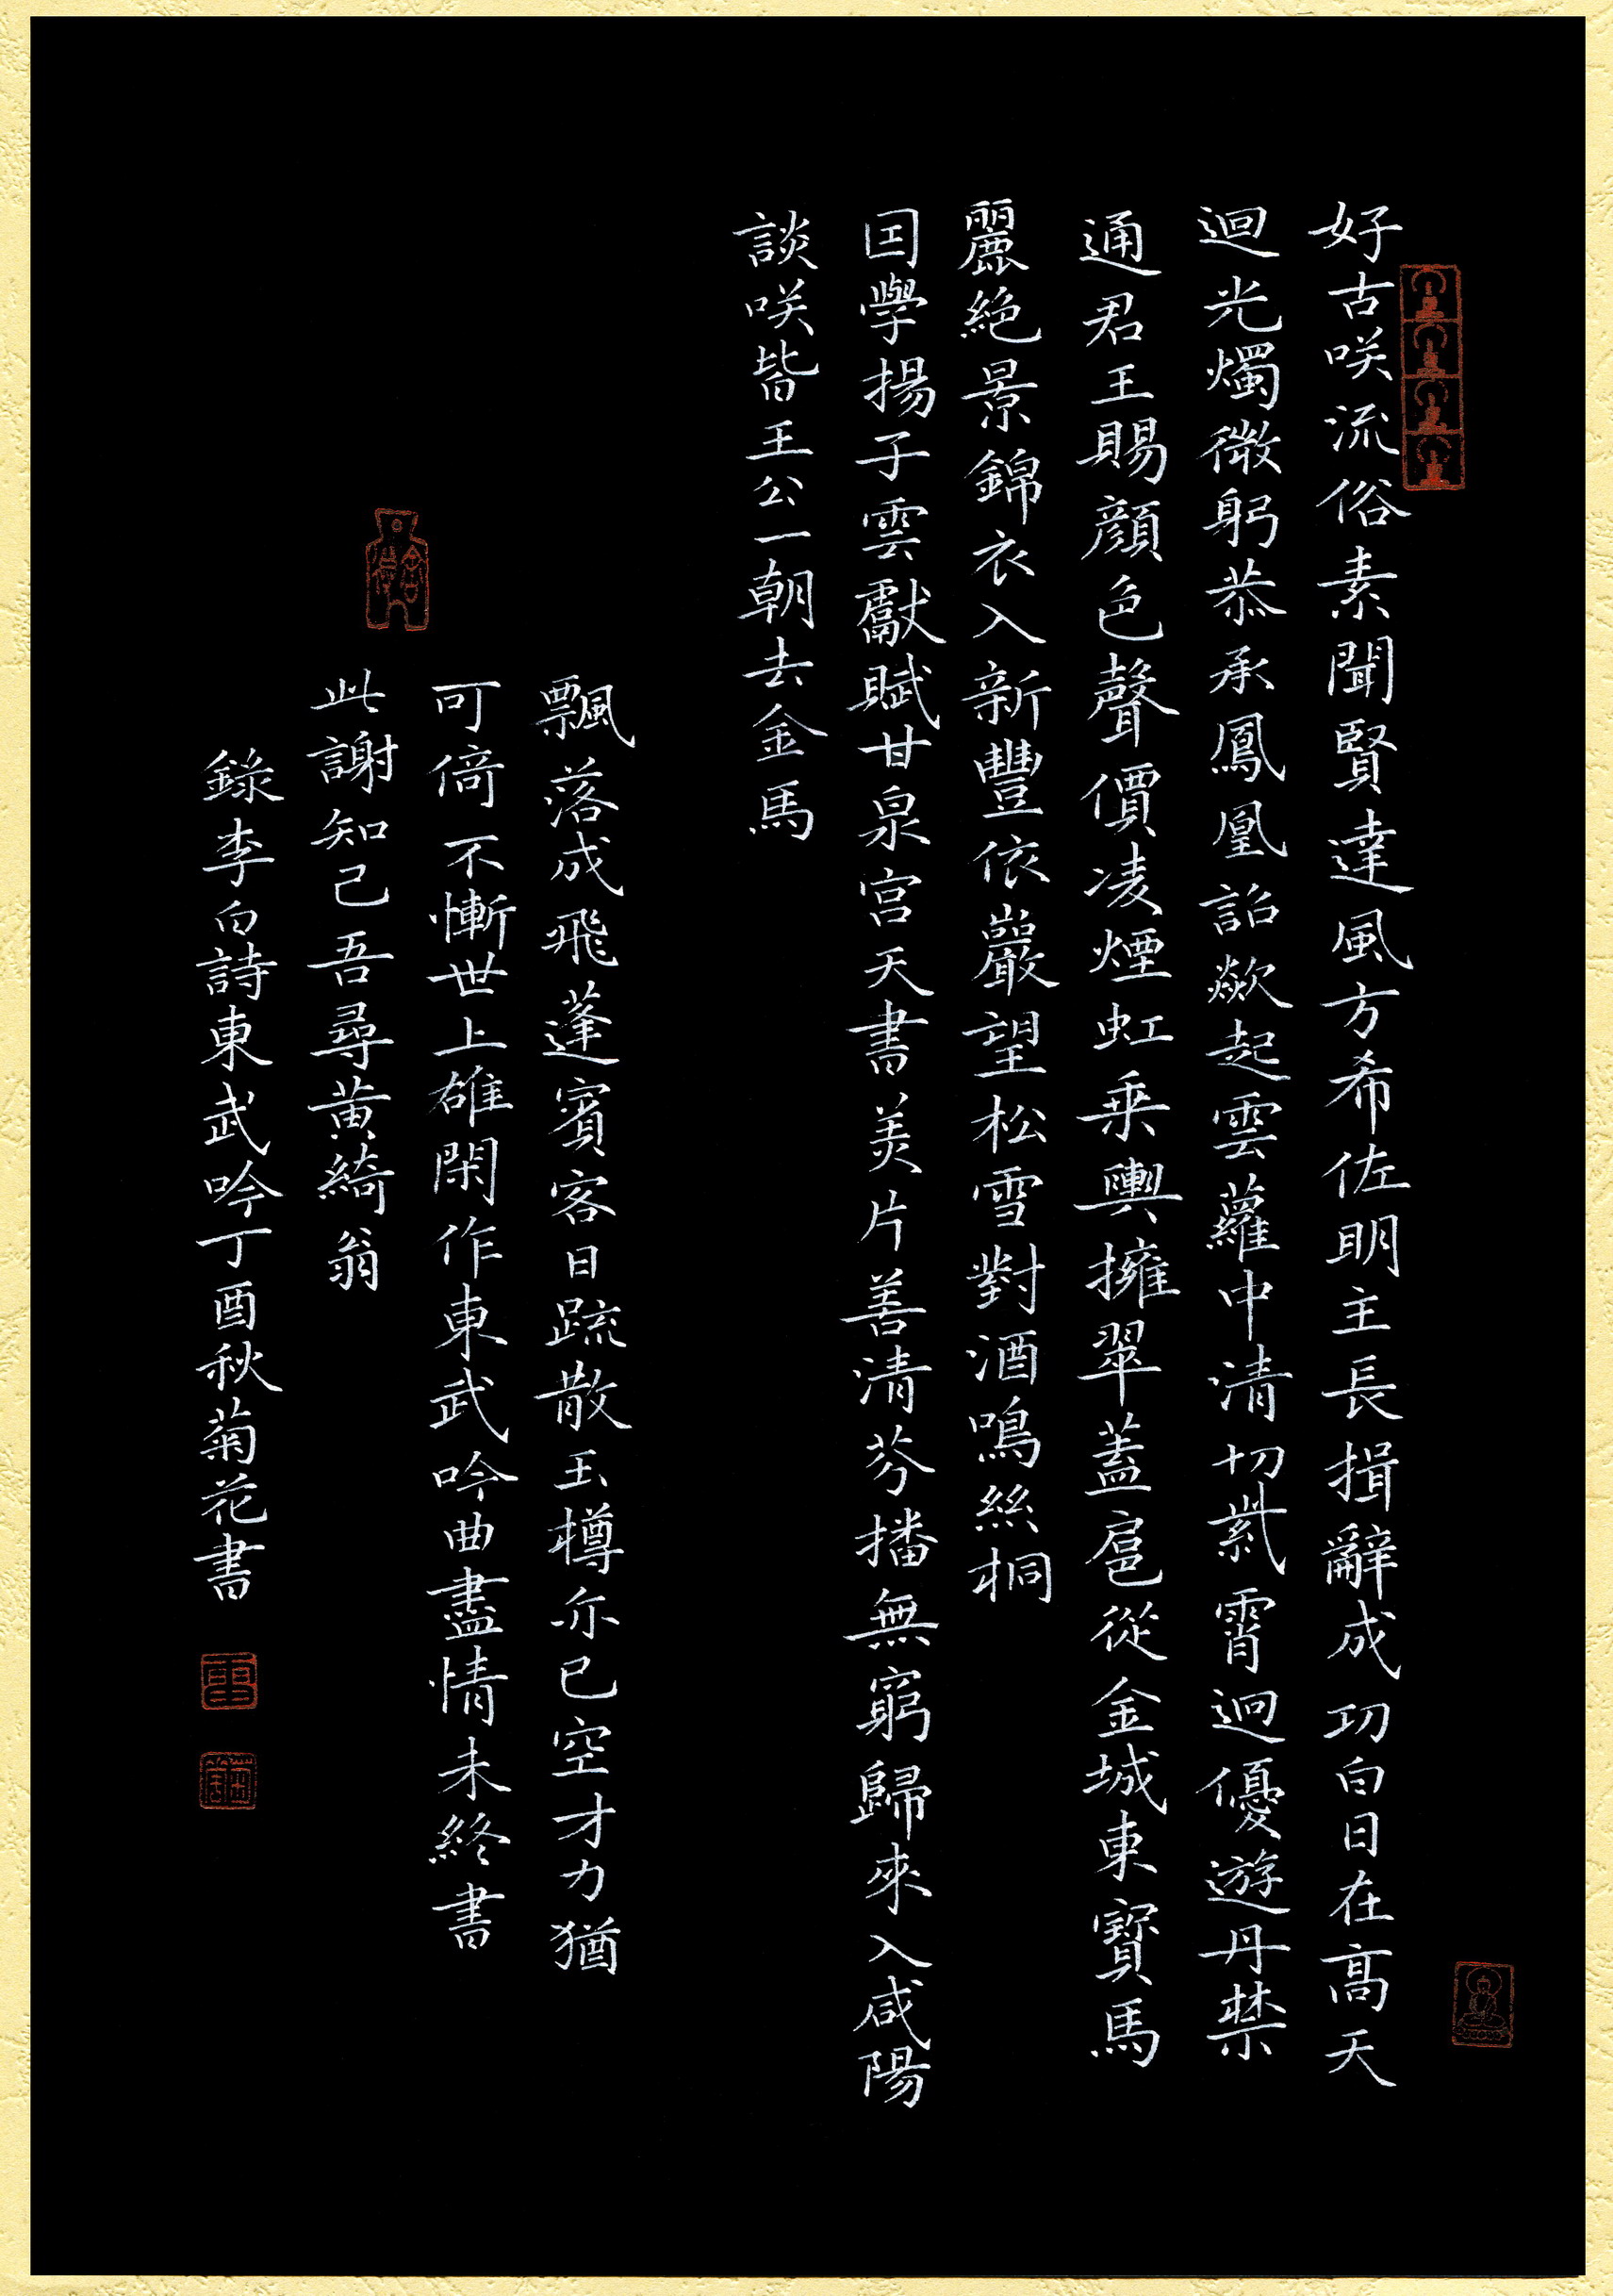 好古咲流俗素聞賢達風方希佐明主長揖辭成功白日在高天
迴光燭微躬恭承鳳凰詔欻起雲蘿中清切紫霄迥優遊丹禁
通君王賜顔色聲價凌煙虹乗輿擁翠蓋扈從金城東寶馬
麗絶景錦衣入新豐依巖望松雪對酒鳴絲桐
因學揚子雲獻賦甘泉宫天書美片善清芬播無窮歸來入咸陽
談咲皆王公一朝去金馬
飄落成飛蓬賓客日疏散玉樽亦已空才力猶
可倚不慚世上雄閑作東武吟曲盡情未終書
此謝知己吾尋黄綺翁
錄李白詩東武吟丁酉秋菊花書